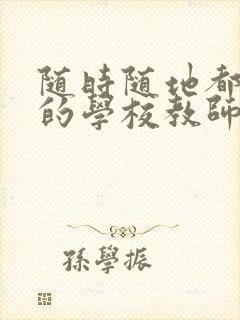 随時随地都
的學校教師
孫學振